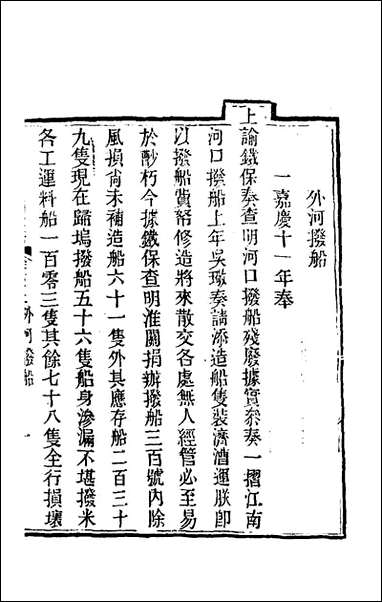 外河撥船
一嘉慶十一年奉
上諭鐵保奏查明河口撥船殘廢據實叅奏一摺江南
河口撥船上年吳璥奏請添造船隻裝濟漕運朕卽
以撥船費帑修造將來散交各處無人經管必至易
於朽今據鐵保查明淮關捐辦撥船三百號內除
風損尙未補造船六十一隻外其應存船二百三十
九隻現在歸塢撥船五十六隻船身滲漏不堪撥米
各工運料船一百零三隻其餘七十八隻全行損壞
外河撥船 一